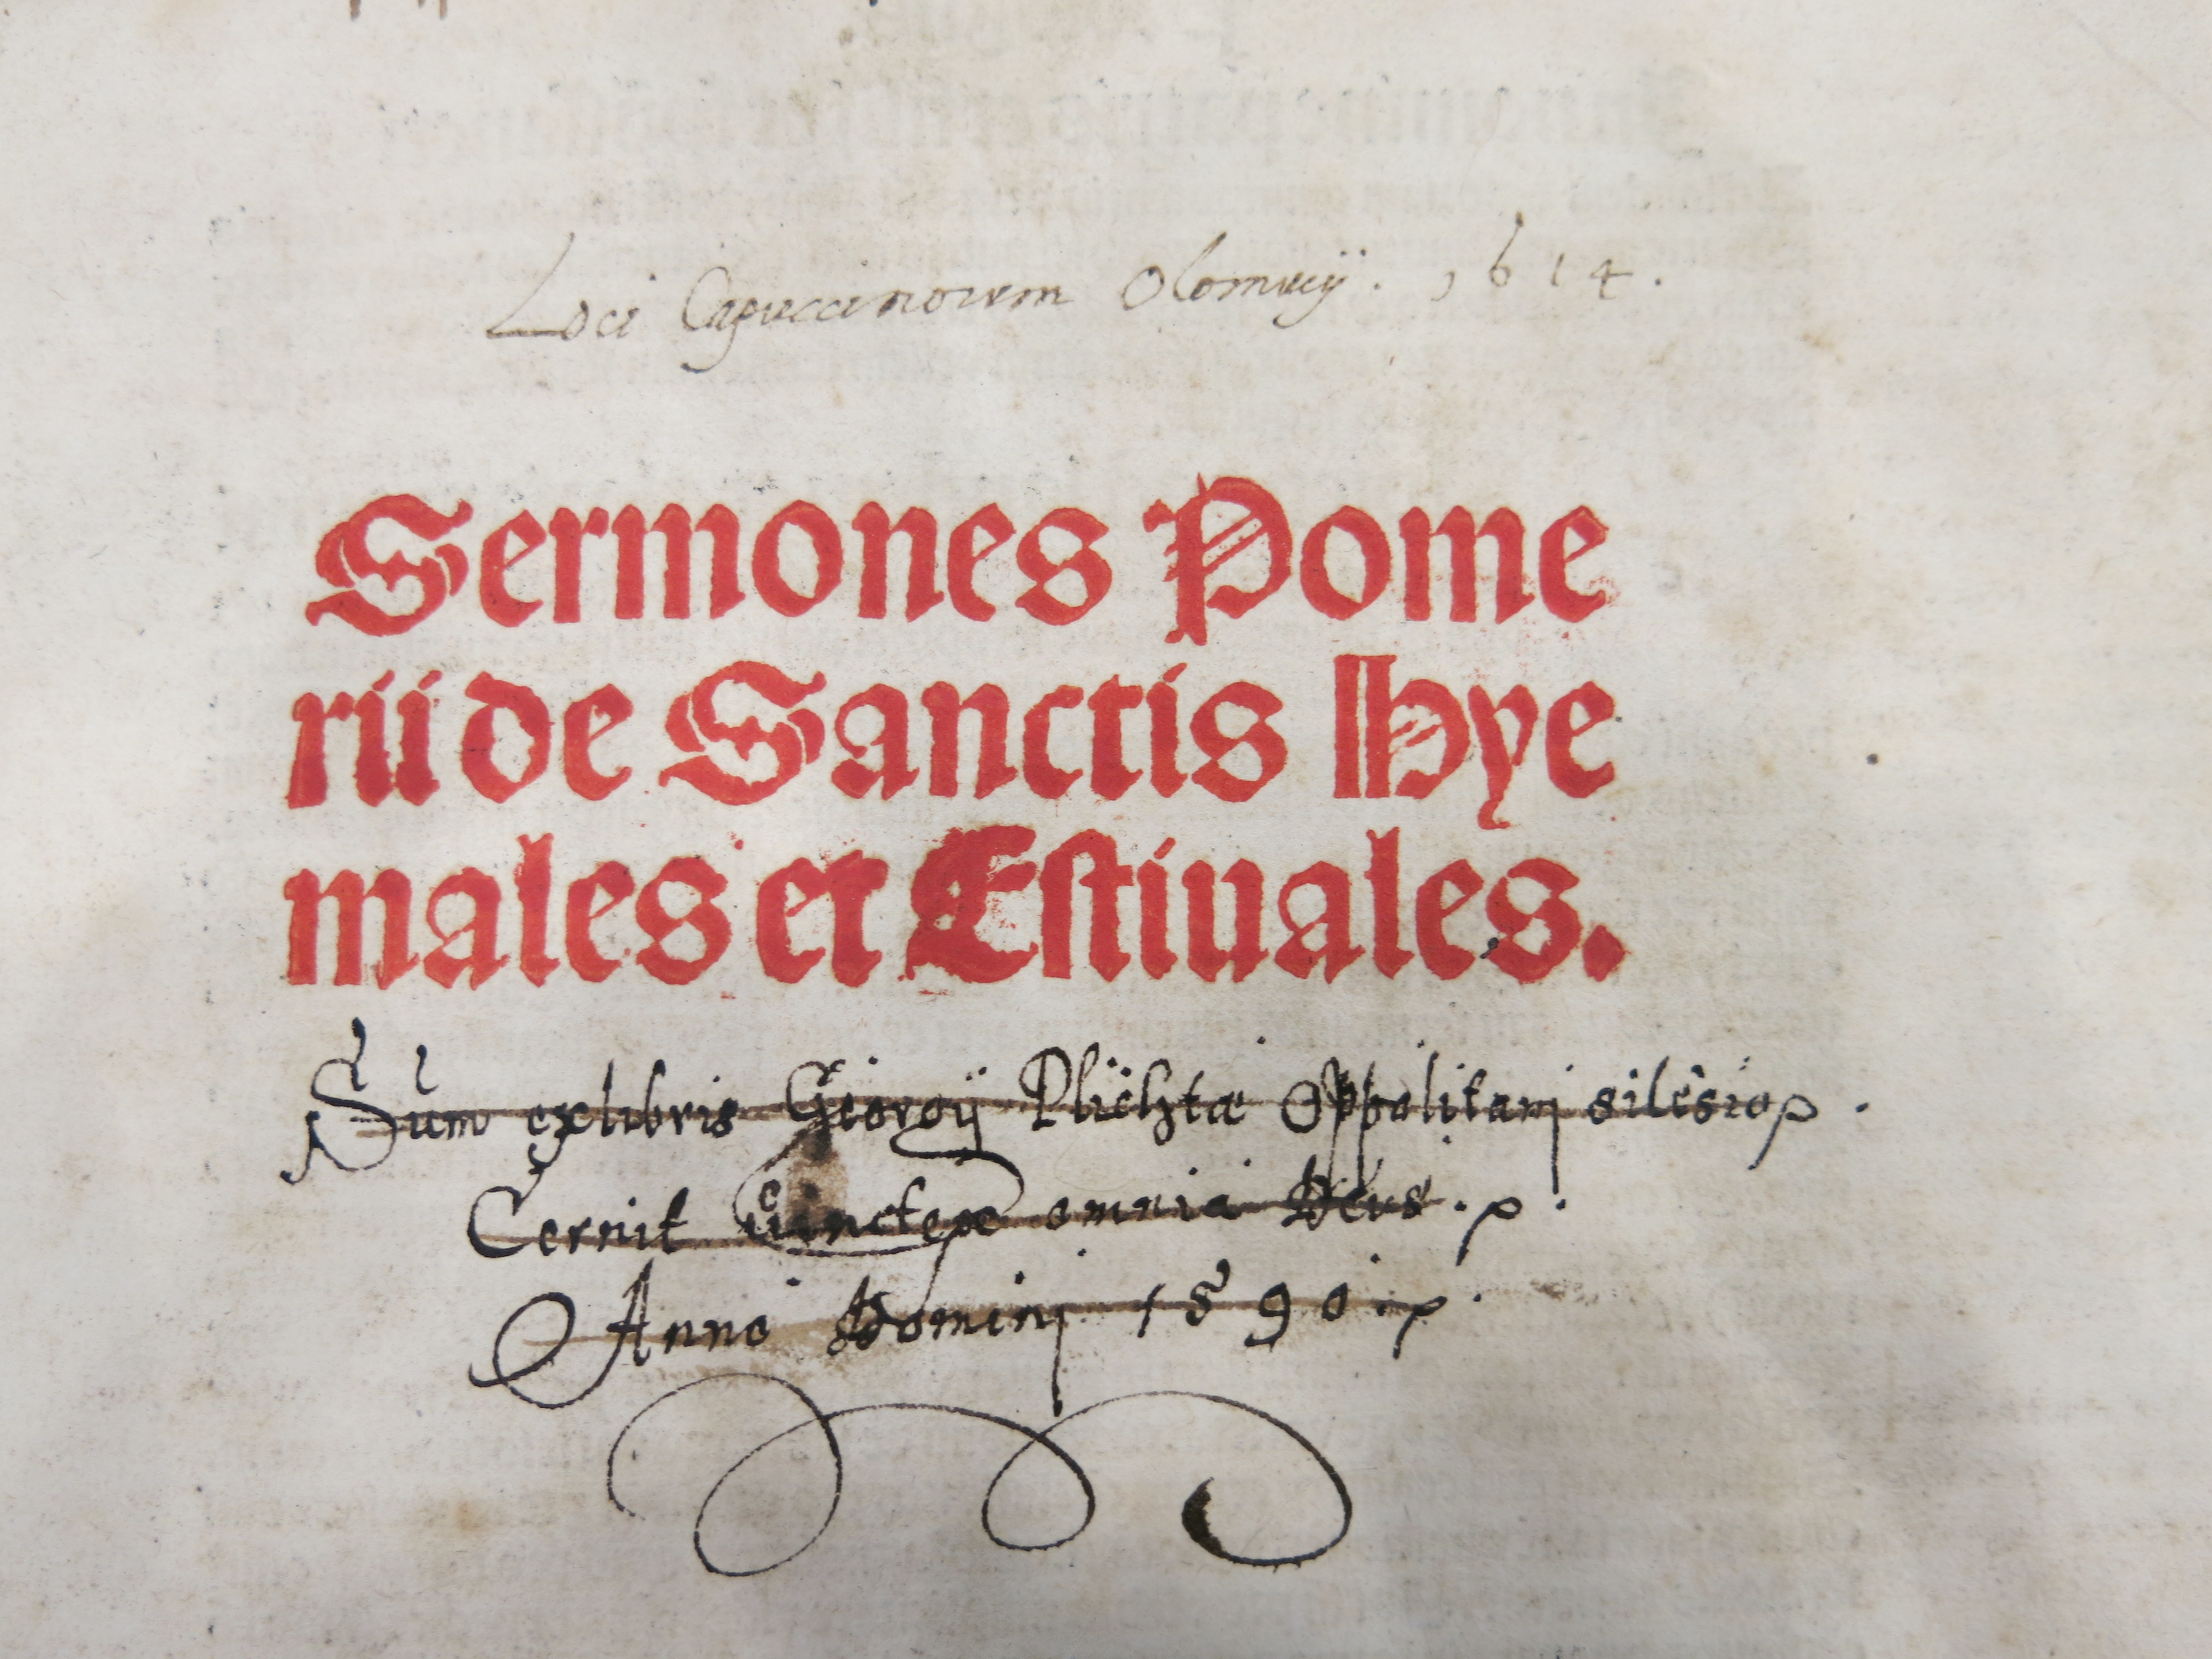 Loci Capuccinorum Olomucij. 1614.
Sermones Pome
rii de Sanctis Hye
males et Estiuales.
Sum ex libris Georgij Plichtæ Oppolitanj
Cernit omnia Deus.
Anno Dominj 1590.